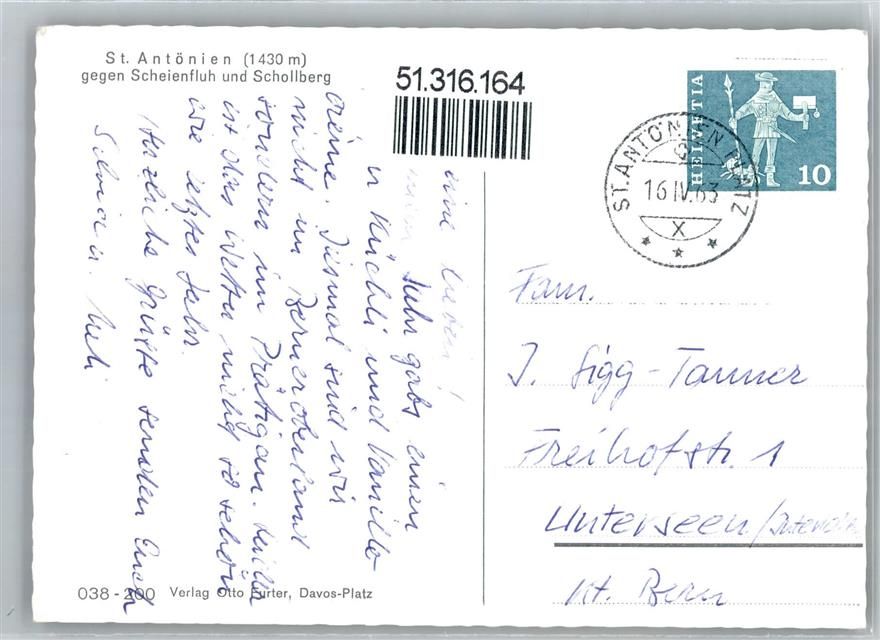 St. Antönien (1430 m)
gegen Scheienfluh und Schollberg
51.316.164
HELVETIA
10
ST. ANTÖNIEN PLATZ
16.IV.63
X
Fam.
J. Sigg-Tanner
Freihofstr. 1
Unterseen/Interlaken
Kt. Bern
Lieben!
Jahr gabs einen
Küchli und Vanille
crème. Diesmal sind wir
nicht im Berneroberland
sondern im Prätigau. Leider
ist das Wetter nicht so schön
wie letztes Jahr.
Herzliche Grüsse senden Euch
Silvia u. Ueli
038 - 200 Verlag Otto Furter, Davos-Platz